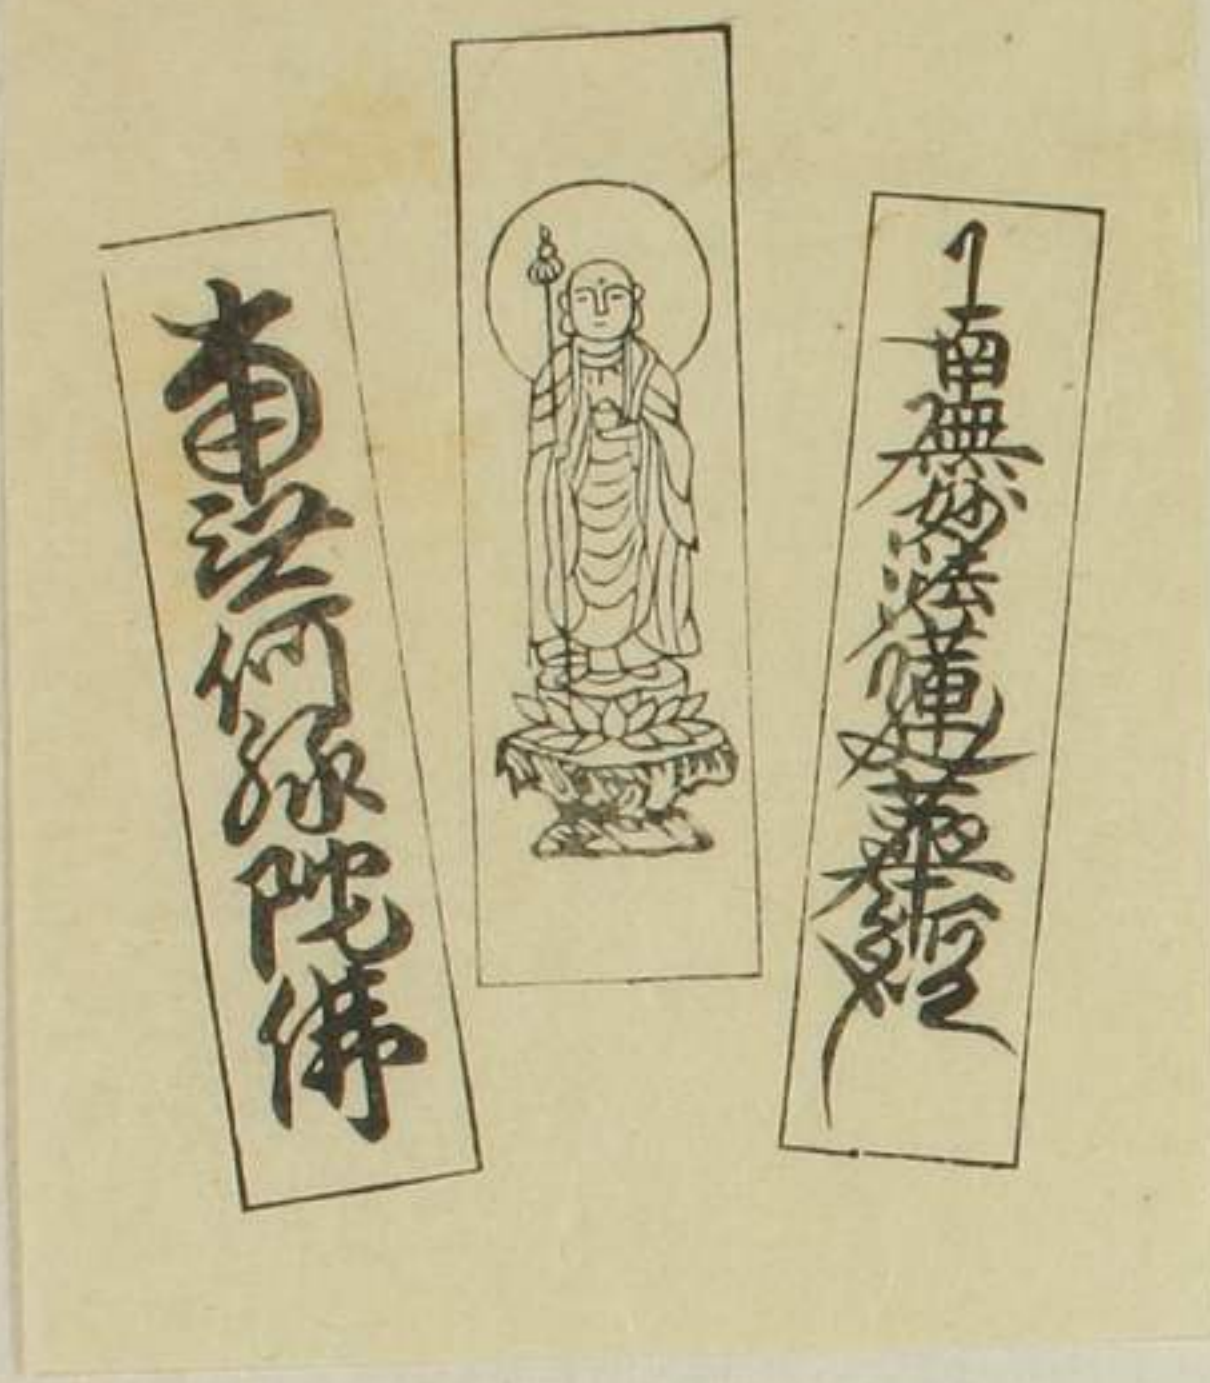 南無妙法蓮華經
南無阿弥陀佛